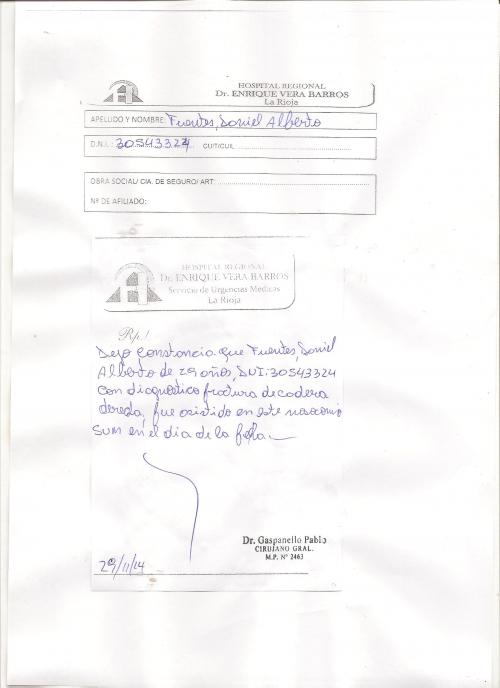 HOSPITAL REGIONAL
Dr. ENRIQUE VERA BARROS
La Rioja
APELLIDO Y NOMBRE: Fuentes, Daniel Alberto
D.N.I.: 30543324 CUIT/CUIL:
OBRA SOCIAL/ CIA. DE SEGURO/ ART:
Nº DE AFILIADO:
HOSPITAL REGIONAL
Dr. ENRIQUE VERA BARROS
Servicio de Urgencias Medicas
La Rioja
Rp./
Dejo constancia que Fuentes, Daniel
Alberto de 29 años, DNI: 30543324
con diagnostico fractura de cadera
derecha, fue asistido en este nosocomio
SUM en el dia de la fecha
Dr. Gaspanello Pablo
CIRUJANO GRAL.
M.P. Nº 2463
29/11/14